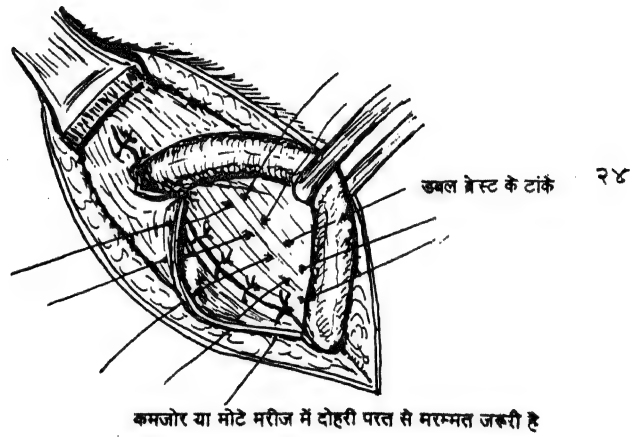 डबल ब्रेस्ट के टांके २४
कमजोर या मोटे मरीज में दोहरी परत से मरम्मत जरूरी है